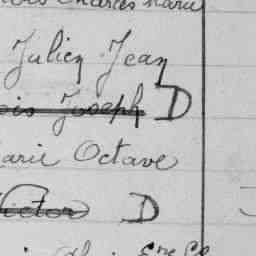 Charles Marie
Julien Jean
Joseph D
Marie Octave
Victor D